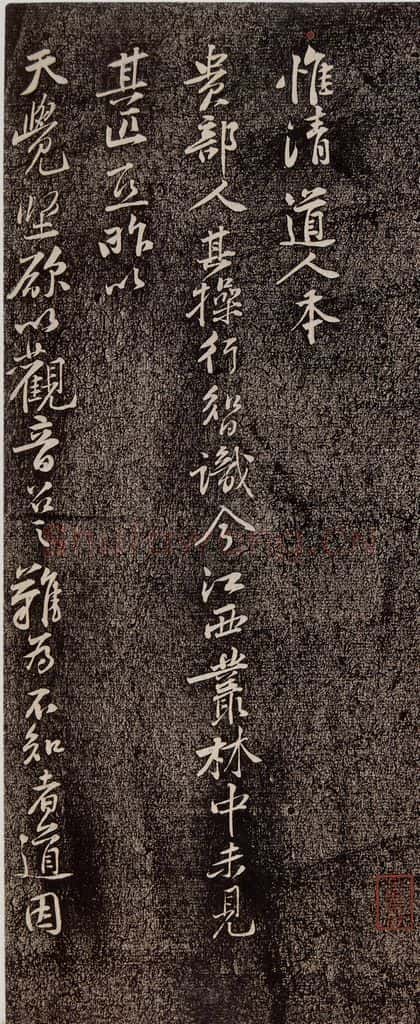 惟清道人本
貴部人其操行智識今江西叢林中未見
其匹亟昨以
天覺堅欲以觀音召之難為不知者道因